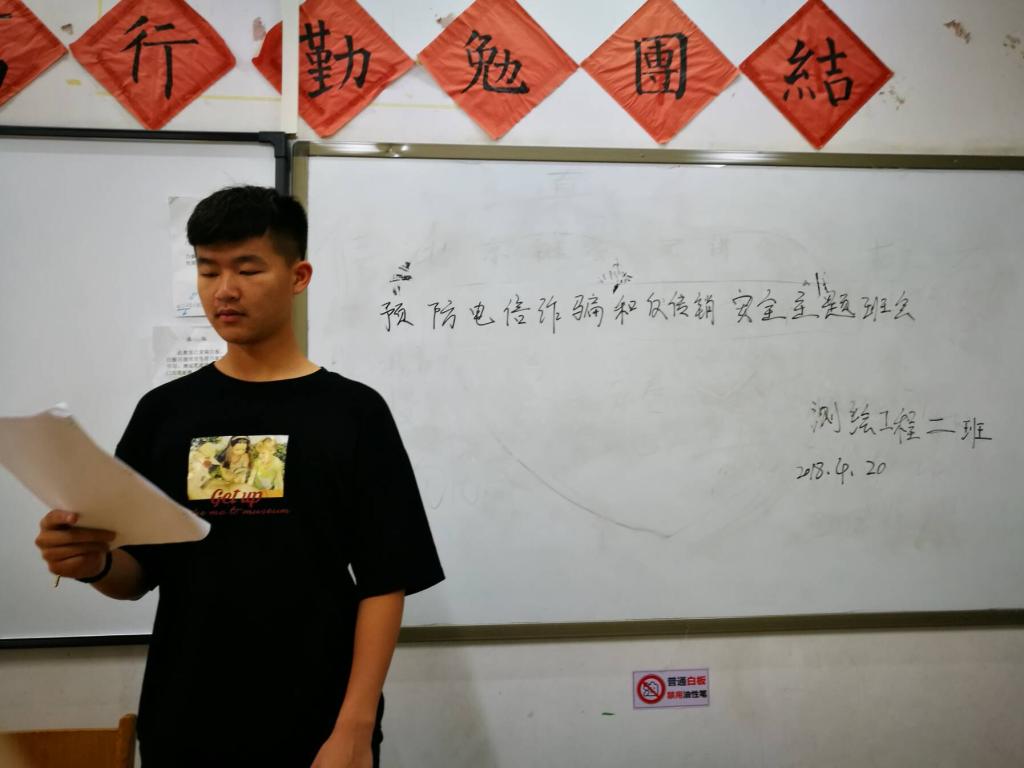 行 勤 勉 團 結
预防电信诈骗和反传销安全主题班会
测绘工程二班
2018.4.20
Get up
me to museum
普通白板
禁用油性笔